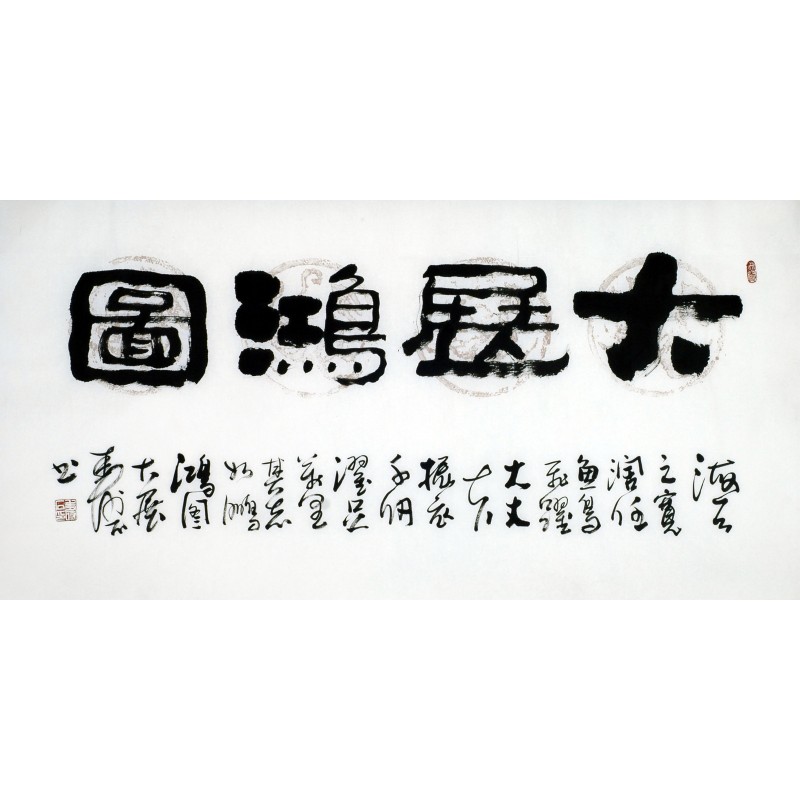 大展鴻圖
海天
之寬
闊任
魚鳥
飛躍
大丈
振衣
千仞
濯足
萬里
其志
如鵬
鴻图
大展
书